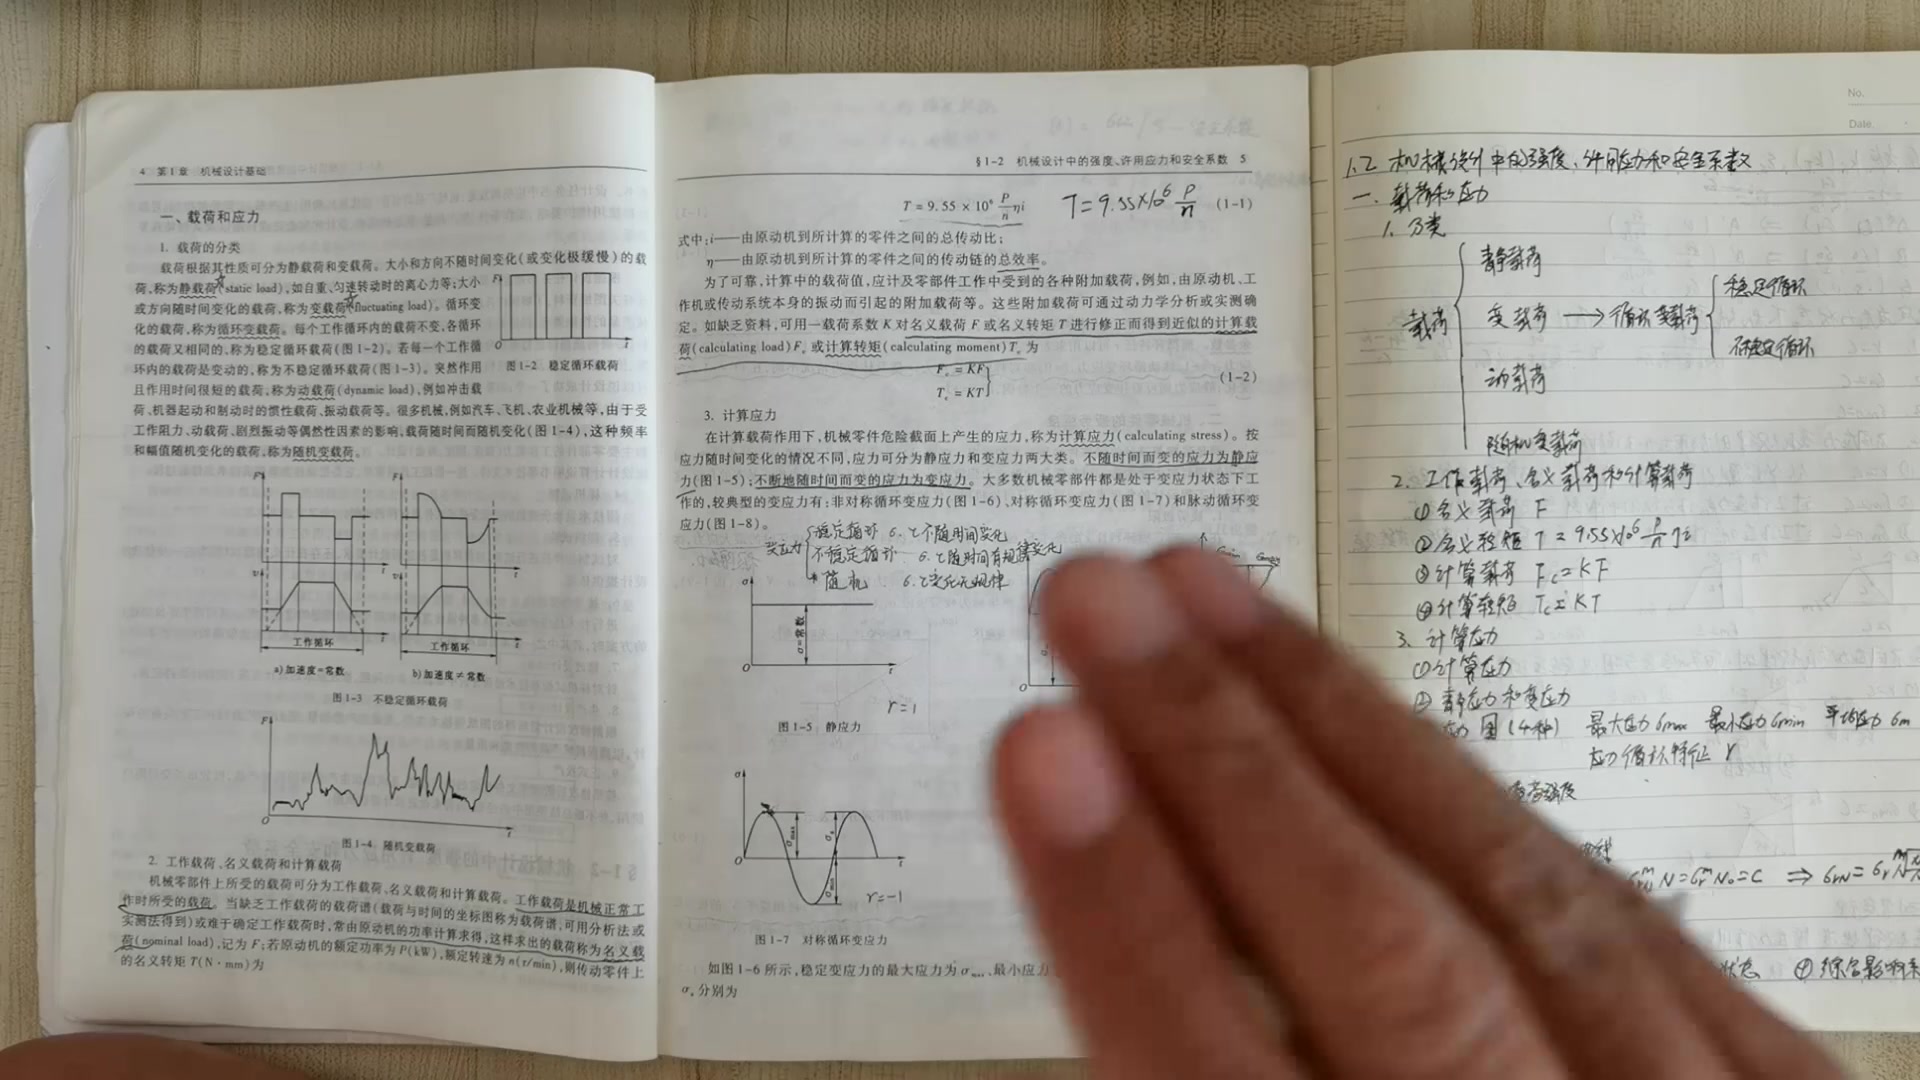 4 第1章 机械设计基础
一、载荷和应力
1. 载荷的分类
载荷根据其性质可分为静载荷和变载荷。大小和方向不随时间变化(或变化极缓慢)的载
荷,称为静载荷(static load),如自重、匀速转动时的离心力等;大小
或方向随时间变化的载荷,称为变载荷(fluctuating load)。循环变
化的载荷,称为循环变载荷。每个工作循环内的载荷不变,各循环
的载荷又相同的,称为稳定循环载荷(图1-2)。若每一个工作循
环内的载荷是变动的,称为不稳定循环载荷(图1-3)。突然作用
且作用时间很短的载荷,称为动载荷(dynamic load),例如冲击载
荷、机器起动和制动时的惯性载荷、振动载荷等。很多机械,例如汽车、飞机、农业机械等,由于受
工作阻力、动载荷、剧烈振动等偶然性因素的影响,载荷随时间而随机变化(图1-4),这种频率
和幅值随机变化的载荷,称为随机变载荷。
F
O
t
图1-2 稳定循环载荷
F
t
v
O
t
工作循环
a)加速度=常数
F
t
v
O
t
工作循环
b)加速度≠常数
图1-3 不稳定循环载荷
F
O
t
图1-4 随机变载荷
2. 工作载荷、名义载荷和计算载荷
机械零部件上所受的载荷可分为工作载荷、名义载荷和计算载荷。工作载荷是机械正常工
作时所受的载荷。当缺乏工作载荷的载荷谱(载荷与时间的坐标图称为载荷谱,可用分析法或
实测法得到)或难于确定工作载荷时,常由原动机的功率计算求得,这样求出的载荷称为名义载
荷(nominal load),记为F;若原动机的额定功率为P(kW),额定转速为n(r/min),则传动零件上
的名义转矩T(N·mm)为
§1-2 机械设计中的强度、许用应力和安全系数 5
T = 9.55 × 10⁶ P/n ηi T=9.55×10⁶ P/n (1-1)
式中:i——由原动机到所计算的零件之间的总传动比;
η——由原动机到所计算的零件之间的传动链的总效率。
为了可靠,计算中的载荷值,应计及零部件工作中受到的各种附加载荷,例如,由原动机、工
作机或传动系统本身的振动而引起的附加载荷等。这些附加载荷可通过动力学分析或实测确
定。如缺乏资料,可用一载荷系数K对名义载荷F或名义转矩T进行修正而得到近似的计算载
荷(calculating load)Fc或计算转矩(calculating moment)Tc为
Fc = KF
Tc = KT} (1-2)
3. 计算应力
在计算载荷作用下,机械零件危险截面上产生的应力,称为计算应力(calculating stress)。按
应力随时间变化的情况不同,应力可分为静应力和变应力两大类。不随时间而变的应力为静应
力(图1-5);不断地随时间而变的应力为变应力。大多数机械零部件都是处于变应力状态下工
作的,较典型的变应力有:非对称循环变应力(图1-6)、对称循环变应力(图1-7)和脉动循环变
应力(图1-8)。
变应力
稳定循环 σ、τ不随时间变化
不稳定循环 σ、τ随时间有规律变化
*随机 σ、τ变化无规律
σ
σ=常数
O
t
r=1
图1-5 静应力
σ
σmax
O
t
r=-1
图1-7 对称循环变应力
如图1-6所示,稳定变应力的最大应力为σmax、最小应力
分别为
No.
Date.
1.2 机械设计中的强度、许用应力和安全系数
一. 载荷和应力
1. 分类
载荷
静载荷
变载荷 → 循环变载荷
稳定循环
不稳定循环
动载荷
随机变载荷
2. 工作载荷、名义载荷和计算载荷
①名义载荷 F
②名义转矩 T=9.55×10⁶ P/n ηi
③计算载荷 Fc=KF
④计算转矩 Tc=KT
3. 计算应力
①计算应力
②静应力和变应力
应力图(4种) 最大应力σmax 最小应力σmin 平均应力σm
应力循环特征 r
N=σrᵐN₀=C ⇒ σrN=σr
状态 ④综合影响系